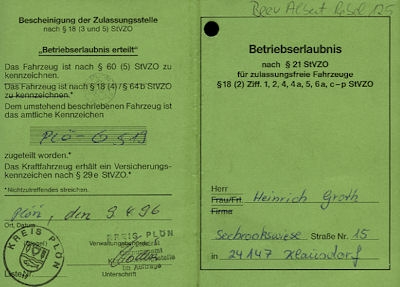 Bescheinigung der Zulassungsstelle
nach § 18 (3 und 5) StVZO
„Betriebserlaubnis erteilt"
Das Fahrzeug ist nach § 60 (5) StVZO zu
kennzeichnen.
Das Fahrzeug ist nach § 18 (4) / § 64 b StVZO
zu kennzeichnen.*
Dem umstehend beschriebenen Fahrzeug ist
das amtliche Kennzeichen
PLÖ-
zugeteilt worden.*
Das Kraftfahrzeug erhält ein Versicherungs-
kennzeichen nach § 29 e StVZO.*
*Nichtzutreffendes streichen.
Plön, den 9.4.96
Ort, Datum
KREIS PLÖN
Unterschrift
KREIS PLÖN
Im Auftrage
Albert 125
Betriebserlaubnis
nach § 21 StVZO
für zulassungsfreie Fahrzeuge
§ 18 (2) Ziff. 1, 2, 4, 4a, 5, 6a, c – p StVZO
Herr
Frau/Frl. Heinrich Groth
Firma
Seebrookswiese Straße Nr. 15
in 24147 Klausdorf